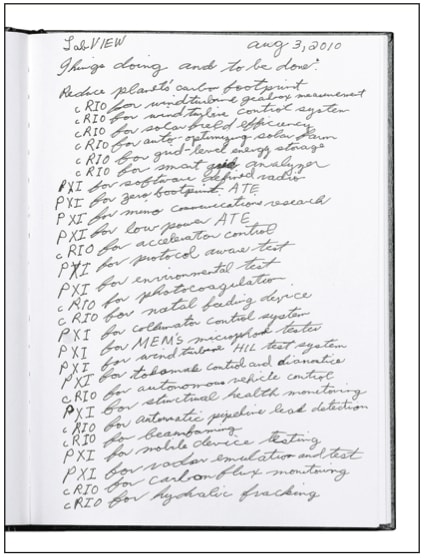 LabVIEW aug 3, 2010
Things doing and to be done:
Reduce planets' carbo footprint
cRIO for windturbine gearbox measurement
cRIO for windturbine control system
cRIO for solar field efficiency
cRIO for auto optimizing solar farm
cRIO for grid-level energy storage
cRIO for smart grid analyzer
PXI for software defined radio
PXI for zero footprint ATE
PXI for mimo communications research
PXI for low power ATE
cRIO for accelerator control
PXI for protocol aware test
PXI for environmental test
cRIO for photocoagulation
cRIO for natal feeding device
PXI for collimator control system
PXI for MEMS microphone tester
PXI for wind turbine HIL test system
PXI for tokamak control and diagnostics
cRIO for autonomous vehicle control
PXI for structural health monitoring
cRIO for automatic pipeline leak detection
cRIO for beamforming
PXI for mobile device testing
PXI for radar emulation and test
cRIO for carbon flux monitoring
cRIO for hydralic fracking